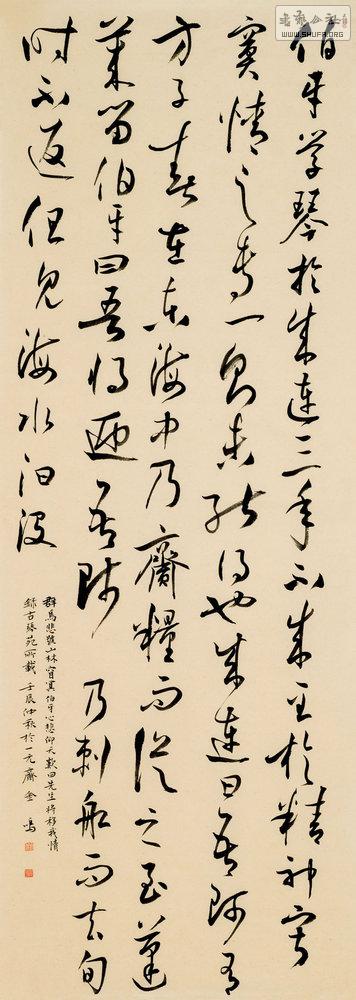 伯牙学琴於成連三年不成至於精神寂
寞情之专一尚未能得也成連曰吾师有
方子春在东海中乃齎糧而從之至蓬
莱留伯牙曰吾将迎吾师乃刺船而去旬
时不返但见海水汩没
群鳥悲號山林窅冥伯牙心悲仰天歎曰先生将移我情
錄古琴苑所載 壬辰仲秋於一元齋
WWW.SHUFA.ORG